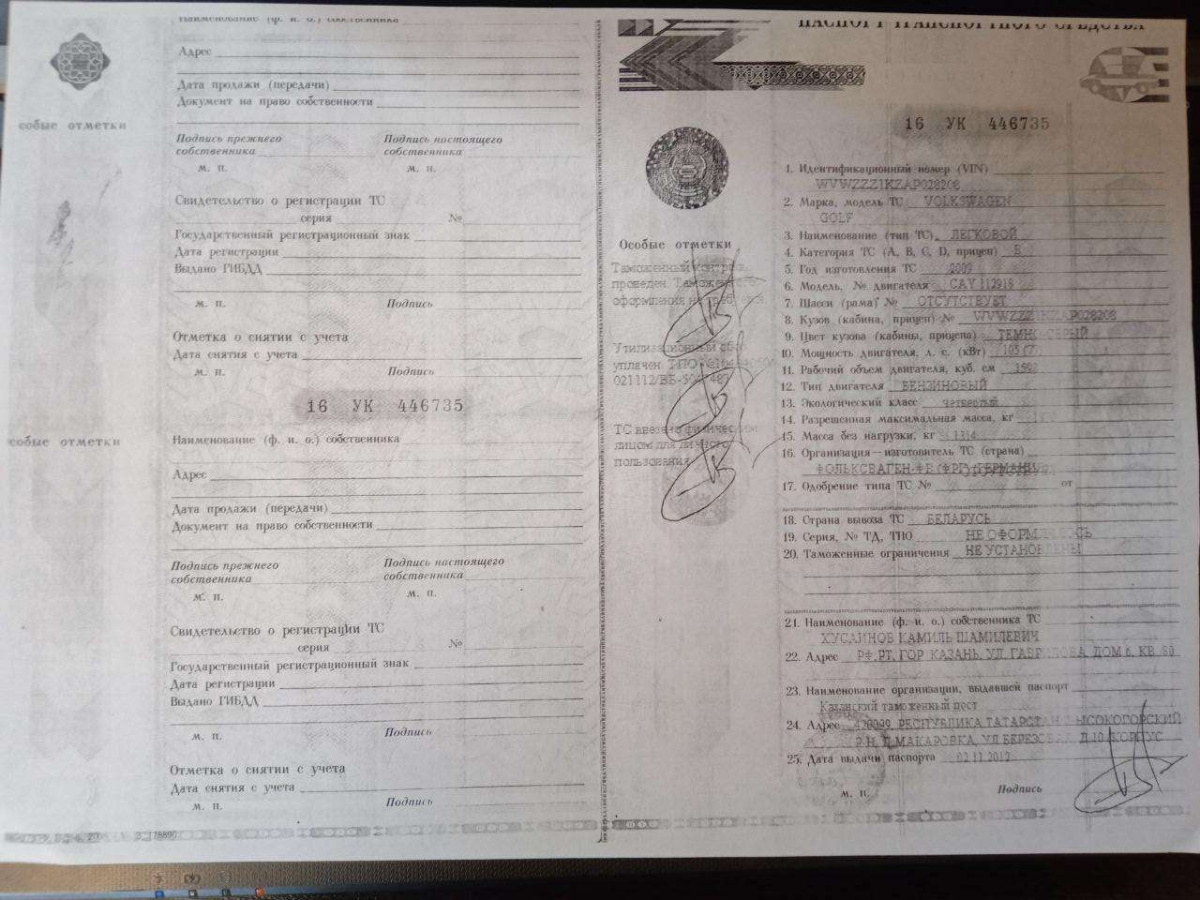 Наименование (ф. и. о.) собственника
Адрес
Дата продажи (передачи)
Документ на право собственности
Подпись прежнего собственника
Подпись настоящего собственника
м. п.
м. п.
Свидетельство о регистрации ТС
серия №
Государственный регистрационный знак
Дата регистрации
Выдано ГИБДД
м. п. Подпись
Отметка о снятии с учета
Дата снятия с учета
м. п. Подпись
собые отметки
16 УК 446735
собые отметки
Наименование (ф. и. о.) собственника
Адрес
Дата продажи (передачи)
Документ на право собственности
Подпись прежнего собственника
Подпись настоящего собственника
м. п.
м. п.
Свидетельство о регистрации ТС
серия №
Государственный регистрационный знак
Дата регистрации
Выдано ГИБДД
м. п. Подпись
Отметка о снятии с учета
Дата снятия с учета
м. п. Подпись
ПАСПОРТ ТРАНСПОРТНОГО СРЕДСТВА
16 УК 446735
Особые отметки
Таможенный контроль
проведен.
оформления
уплачен ТПО
ТС ввезено физическим
лицом для личного
пользования
1. Идентификационный номер (VIN)
WVWZZZ1KZAP028208
2. Марка, модель ТС VOLKSWAGEN
GOLF
3. Наименование (тип ТС) ЛЕГКОВОЙ
4. Категория ТС (A, B, C, D, прицеп) B
5. Год изготовления ТС 2009
6. Модель, № двигателя CAY 112918
7. Шасси (рама) № ОТСУТСТВУЕТ
8. Кузов (кабина, прицеп) № WVWZZZ1KZAP028208
9. Цвет кузова (кабины, прицепа) ТЕМНО-СЕРЫЙ
10. Мощность двигателя, л. с. (кВт)
11. Рабочий объем двигателя, куб. см 1598
12. Тип двигателя БЕНЗИНОВЫЙ
13. Экологический класс четвертый
14. Разрешенная максимальная масса, кг
15. Масса без нагрузки, кг 1314
16. Организация—изготовитель ТС (страна)
ФОЛЬКСВАГЕН
17. Одобрение типа ТС № от
18. Страна вывоза ТС БЕЛАРУСЬ
19. Серия, № ТД, ТПО НЕ ОФОРМЛЯЛОСЬ
20. Таможенные ограничения НЕ УСТАНОВЛЕНЫ
21. Наименование (ф. и. о.) собственника ТС
ХУСАИНОВ КАМИЛЬ ШАМИЛЕВИЧ
22. Адрес РФ, РТ, ГОР КАЗАНЬ, УЛ ГАВРИЛОВА, ДОМ 6 КВ
23. Наименование организации, выдавшей паспорт
Казанский таможенный пост
24. Адрес РЕСПУБЛИКА ТАТАРСТАН ВЫСОКОГОРСКИЙ
Р-Н, Д МАКАРОВКА, УЛ БЕРЕЗОВАЯ, Д 10, КОРПУС
25. Дата выдачи паспорта 02.11.2012
м. п. Подпись